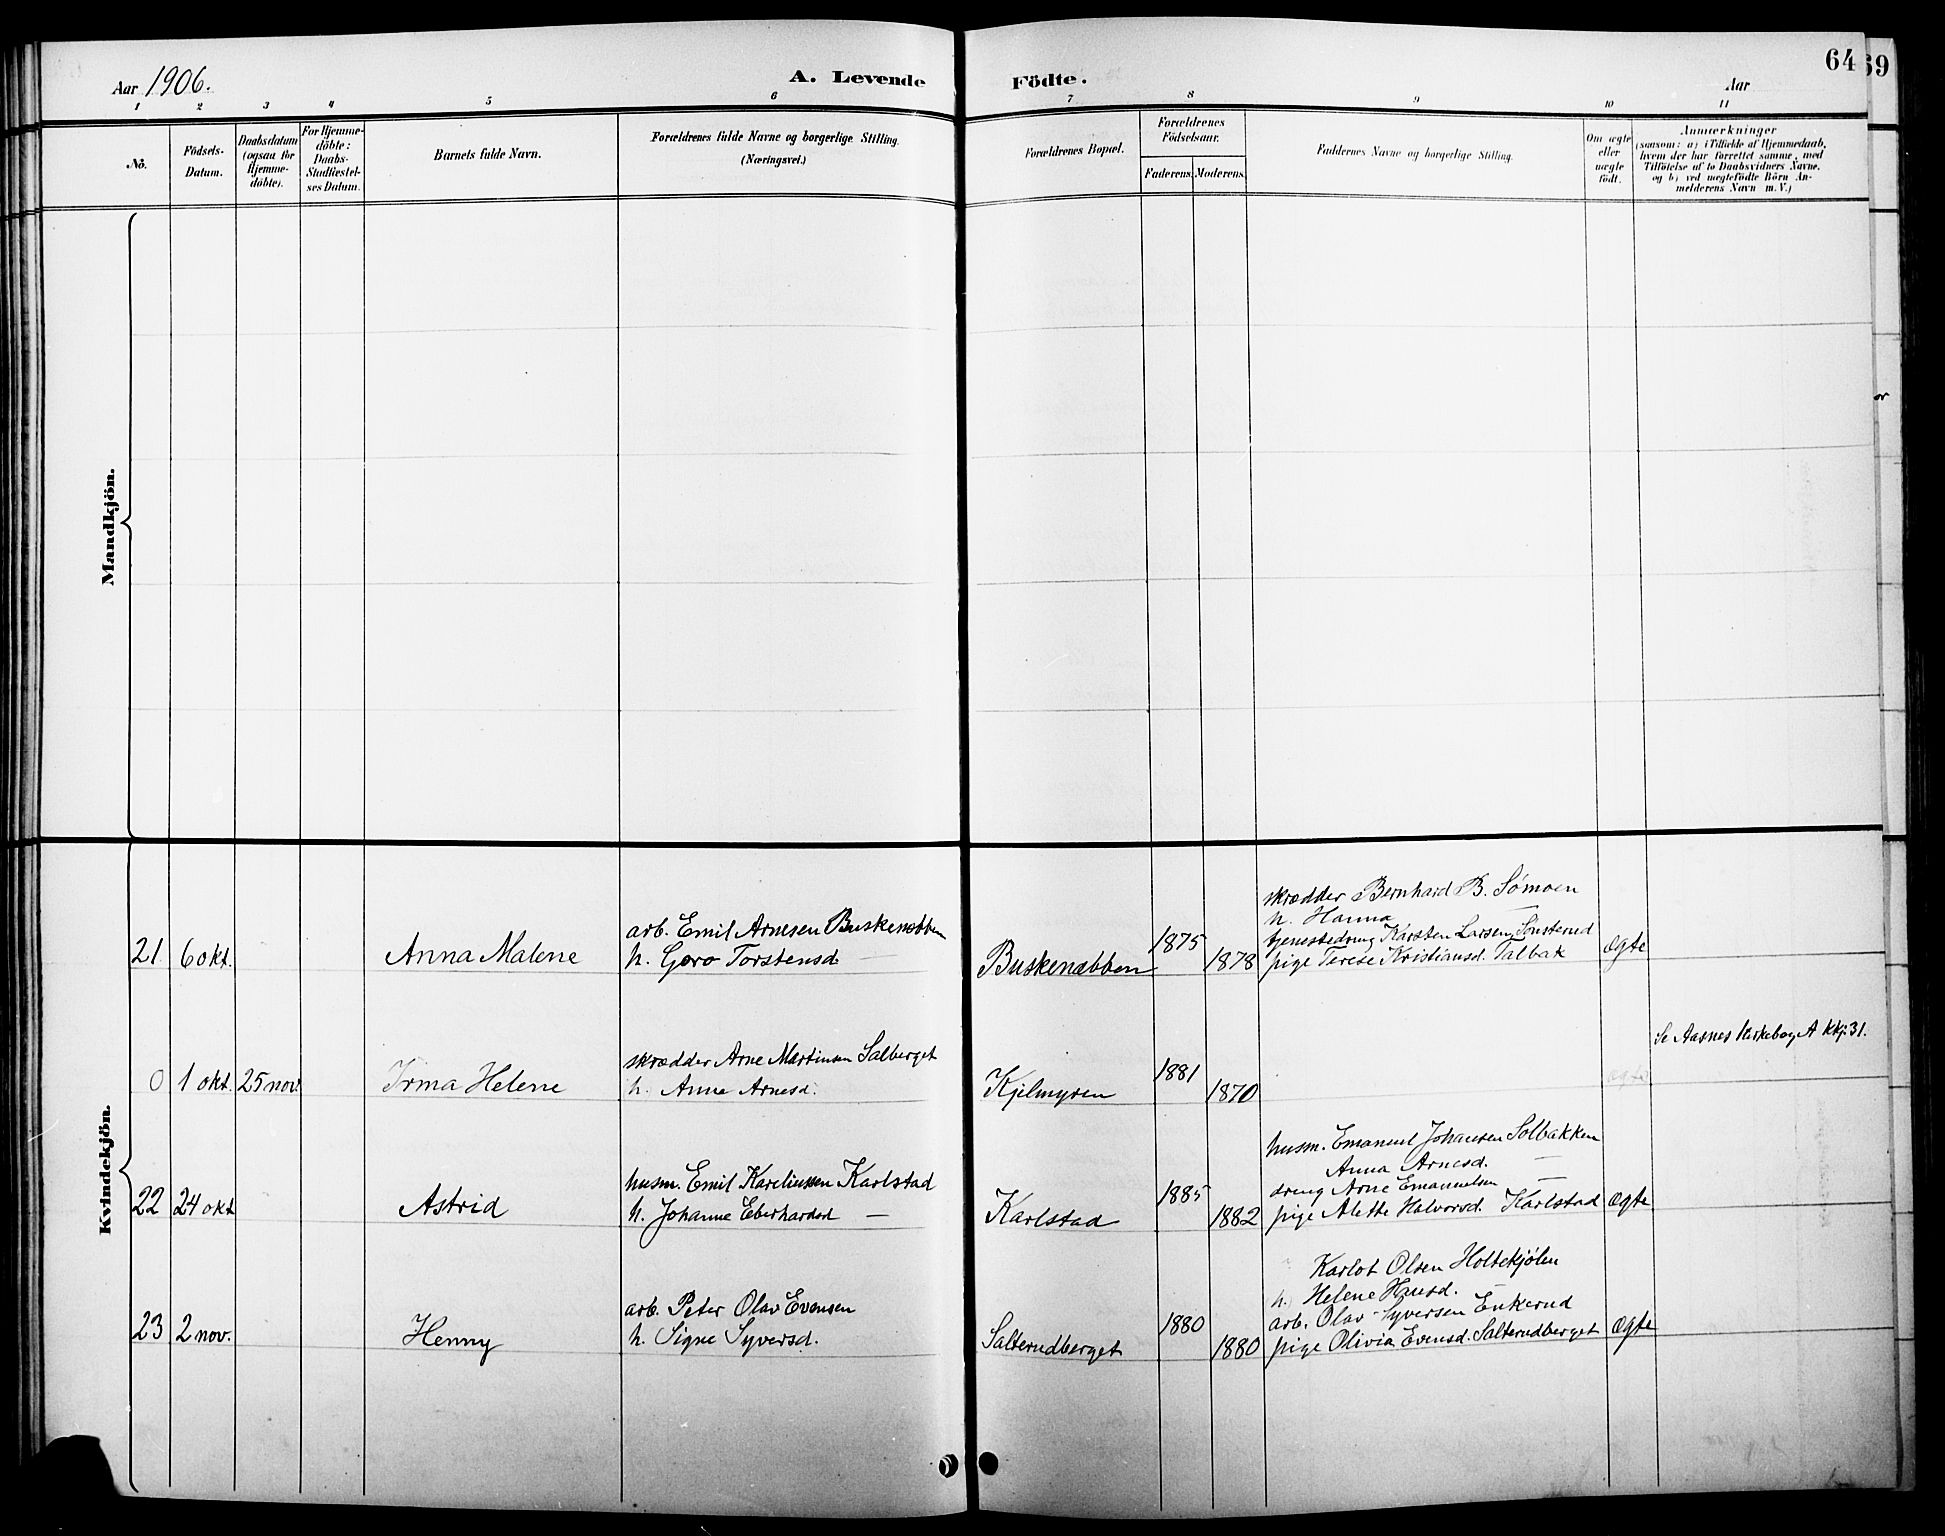 Aar 1906.
A. Levende Födte.
Aar
64
69
1 2 3 4 5 6 7 8 9 10 11
No.
Födsels-
Datum.
Daabsdatum
(ogsaa for
Hjemme-
döbte).
For Hjemme-
döbte:
Daabs-
Stadfæstel-
ses Datum.
Barnets fulde Navn.
Forældrenes fulde Navne og borgerlige Stilling.
(Næringsvei.)
Forældrenes Bopæl.
Forældrenes
Födselsaar.
Faderens. Moderens.
Faddernes Navne og borgerlige Stilling.
Om ægte
eller
uægte
födt.
Anmærkninger
(saasom: a) i Tilfælde af Hjemmedaab,
hvem der har forrettet samme, med
Tilföielse af to Daabsvidners Navne.
og b) ved uægtefödte Börn An-
melderens Navn m. V.)
or
Mandkjön.
Kvindekjön.
21 6 okt.
Anna Malene
arb. Emil Arnesen Buskenæbben
h. Goro Torstensd —
Buskenæbben
1875
1878
skrædder Bernhard B. Sømoen
h. Hanna —
tjenestedreng Karsten Larsen Sønsterud
pige Terese Kristiansd. Talbak
ægte
0 1 okt. 25 nov
Irma Helene
skrædder Arne Martinsen Salberget
h. Anne Arnesd.
Kjelmyren
1881
1870
ægte
Se Aasnes Kirkebog A 31.
22 24 okt
Astrid
husm. Emil Kareliussen Karlstad
h. Johanne Eberhardsd —
Karlstad
1885
1882
husm. Emanuel Johansen Solbakken
Anna Arnesd. —
dreng Arne Emanuelsen —
pige Alette Halvorsd. Karlstad
ægte
23 2 nov.
Henny
arb. Peter Olav Evensen
h. Signe Syversd.
Salterudberget
1880
1880
Karlot Olsen Holtekjølen
h. Helene Hansd. —
arb. Olav Syversen Enkerud
pige Olivia Evensd. Salterudberget
ægte